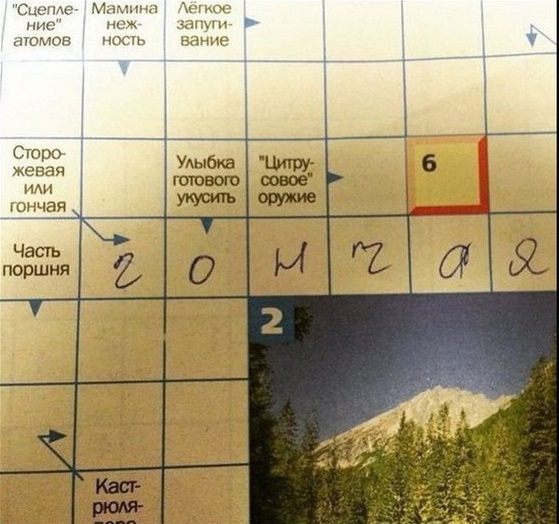 "Сцепле-
ние"
атомов
Мамина
неж-
ность
Лёгкое
запуги-
вание
Сторо-
жевая
или
гончая
Улыбка
готового
укусить
"Цитру-
совое"
оружие
6
Часть
поршня
гончая
2
Каст-
рюля-